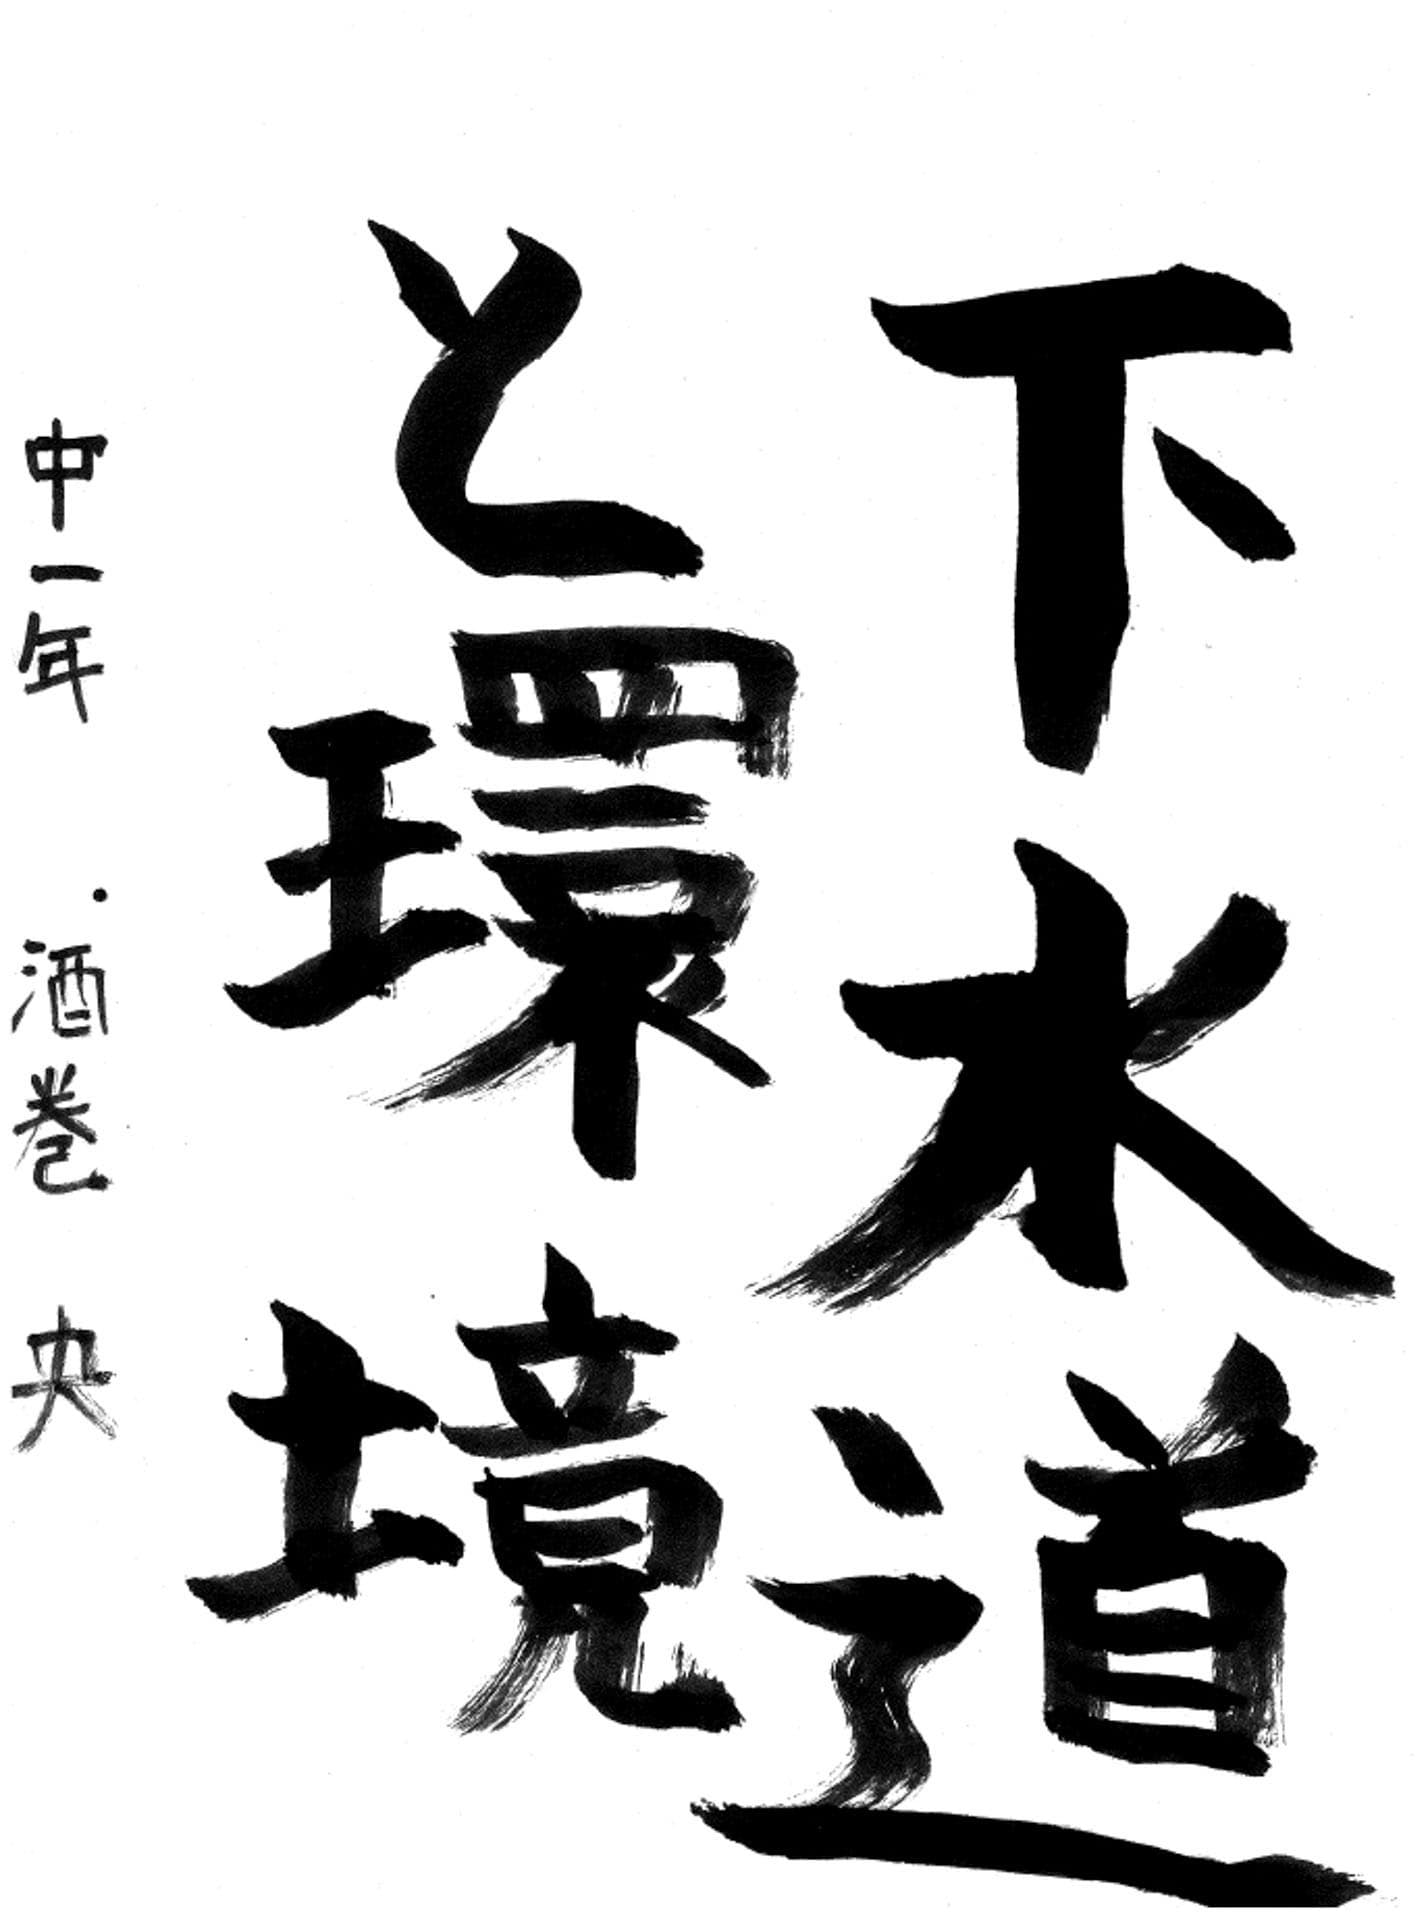 下水道
と環境
中一年 酒巻 央